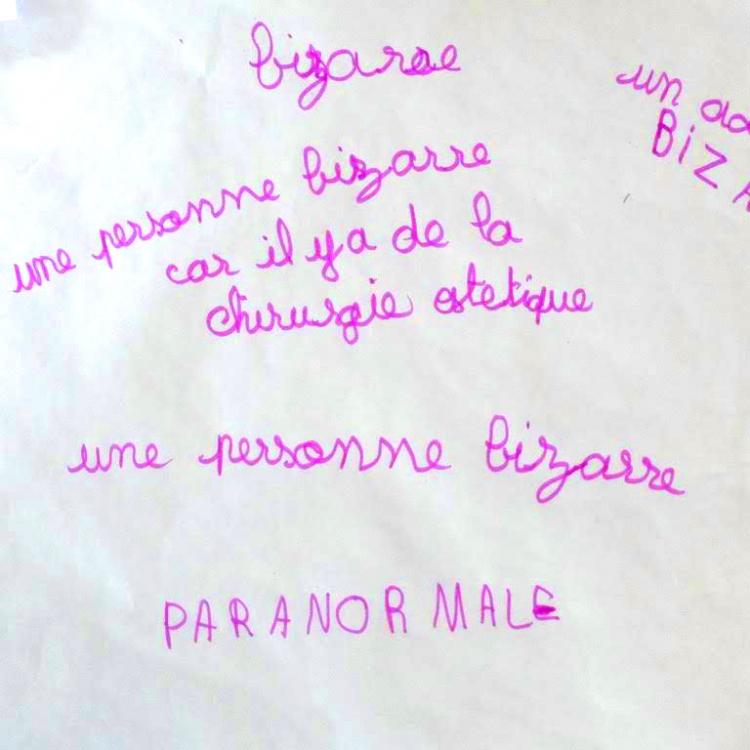 bizarre
une personne bizarre
car il y a de la
chirurgie estetique
une personne bizarre
PARANORMALE
un
BIZA